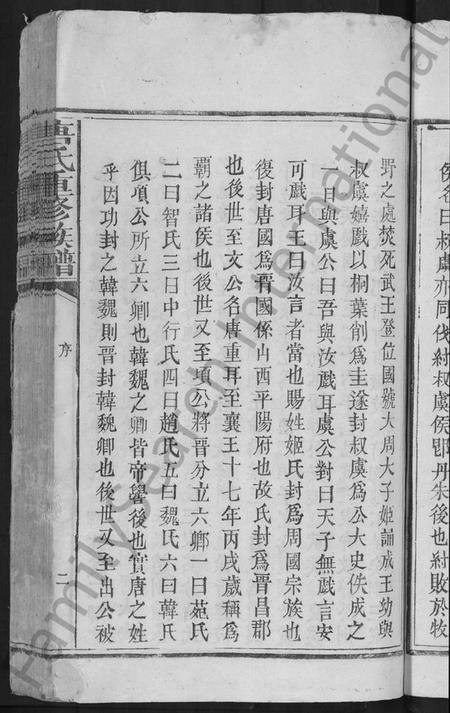 侯名曰叔虞亦同伐紂叔虞侯即丹朱後也紂敗於牧
野之處焚死武王登位國號大周大子姬誦成王幼與
叔虞嬉戲以桐葉削為圭遂封叔虞為公大史佚成之
一日與虞公曰吾與汝戲耳虞公對曰天子無戲言安
可戲耳王曰汝言者當也賜姓姬氏封為周國宗族也
復封唐國為晉國係山西平陽府也故氏封為晉昌郡
也後世至文公名唐重耳至襄王十七年丙戌歲稱為
霸之諸侯也後世又至項公將晉分立六卿一曰范氏
二曰智氏三曰中行氏四曰趙氏五曰魏氏六曰韓氏
俱項公所立六卿也韓魏之卿皆帝嚳後也實唐之姓
乎因功封之韓魏則晉封韓魏卿也後世又至出公被
唐氏重修族譜
序
二
FamilySearch International